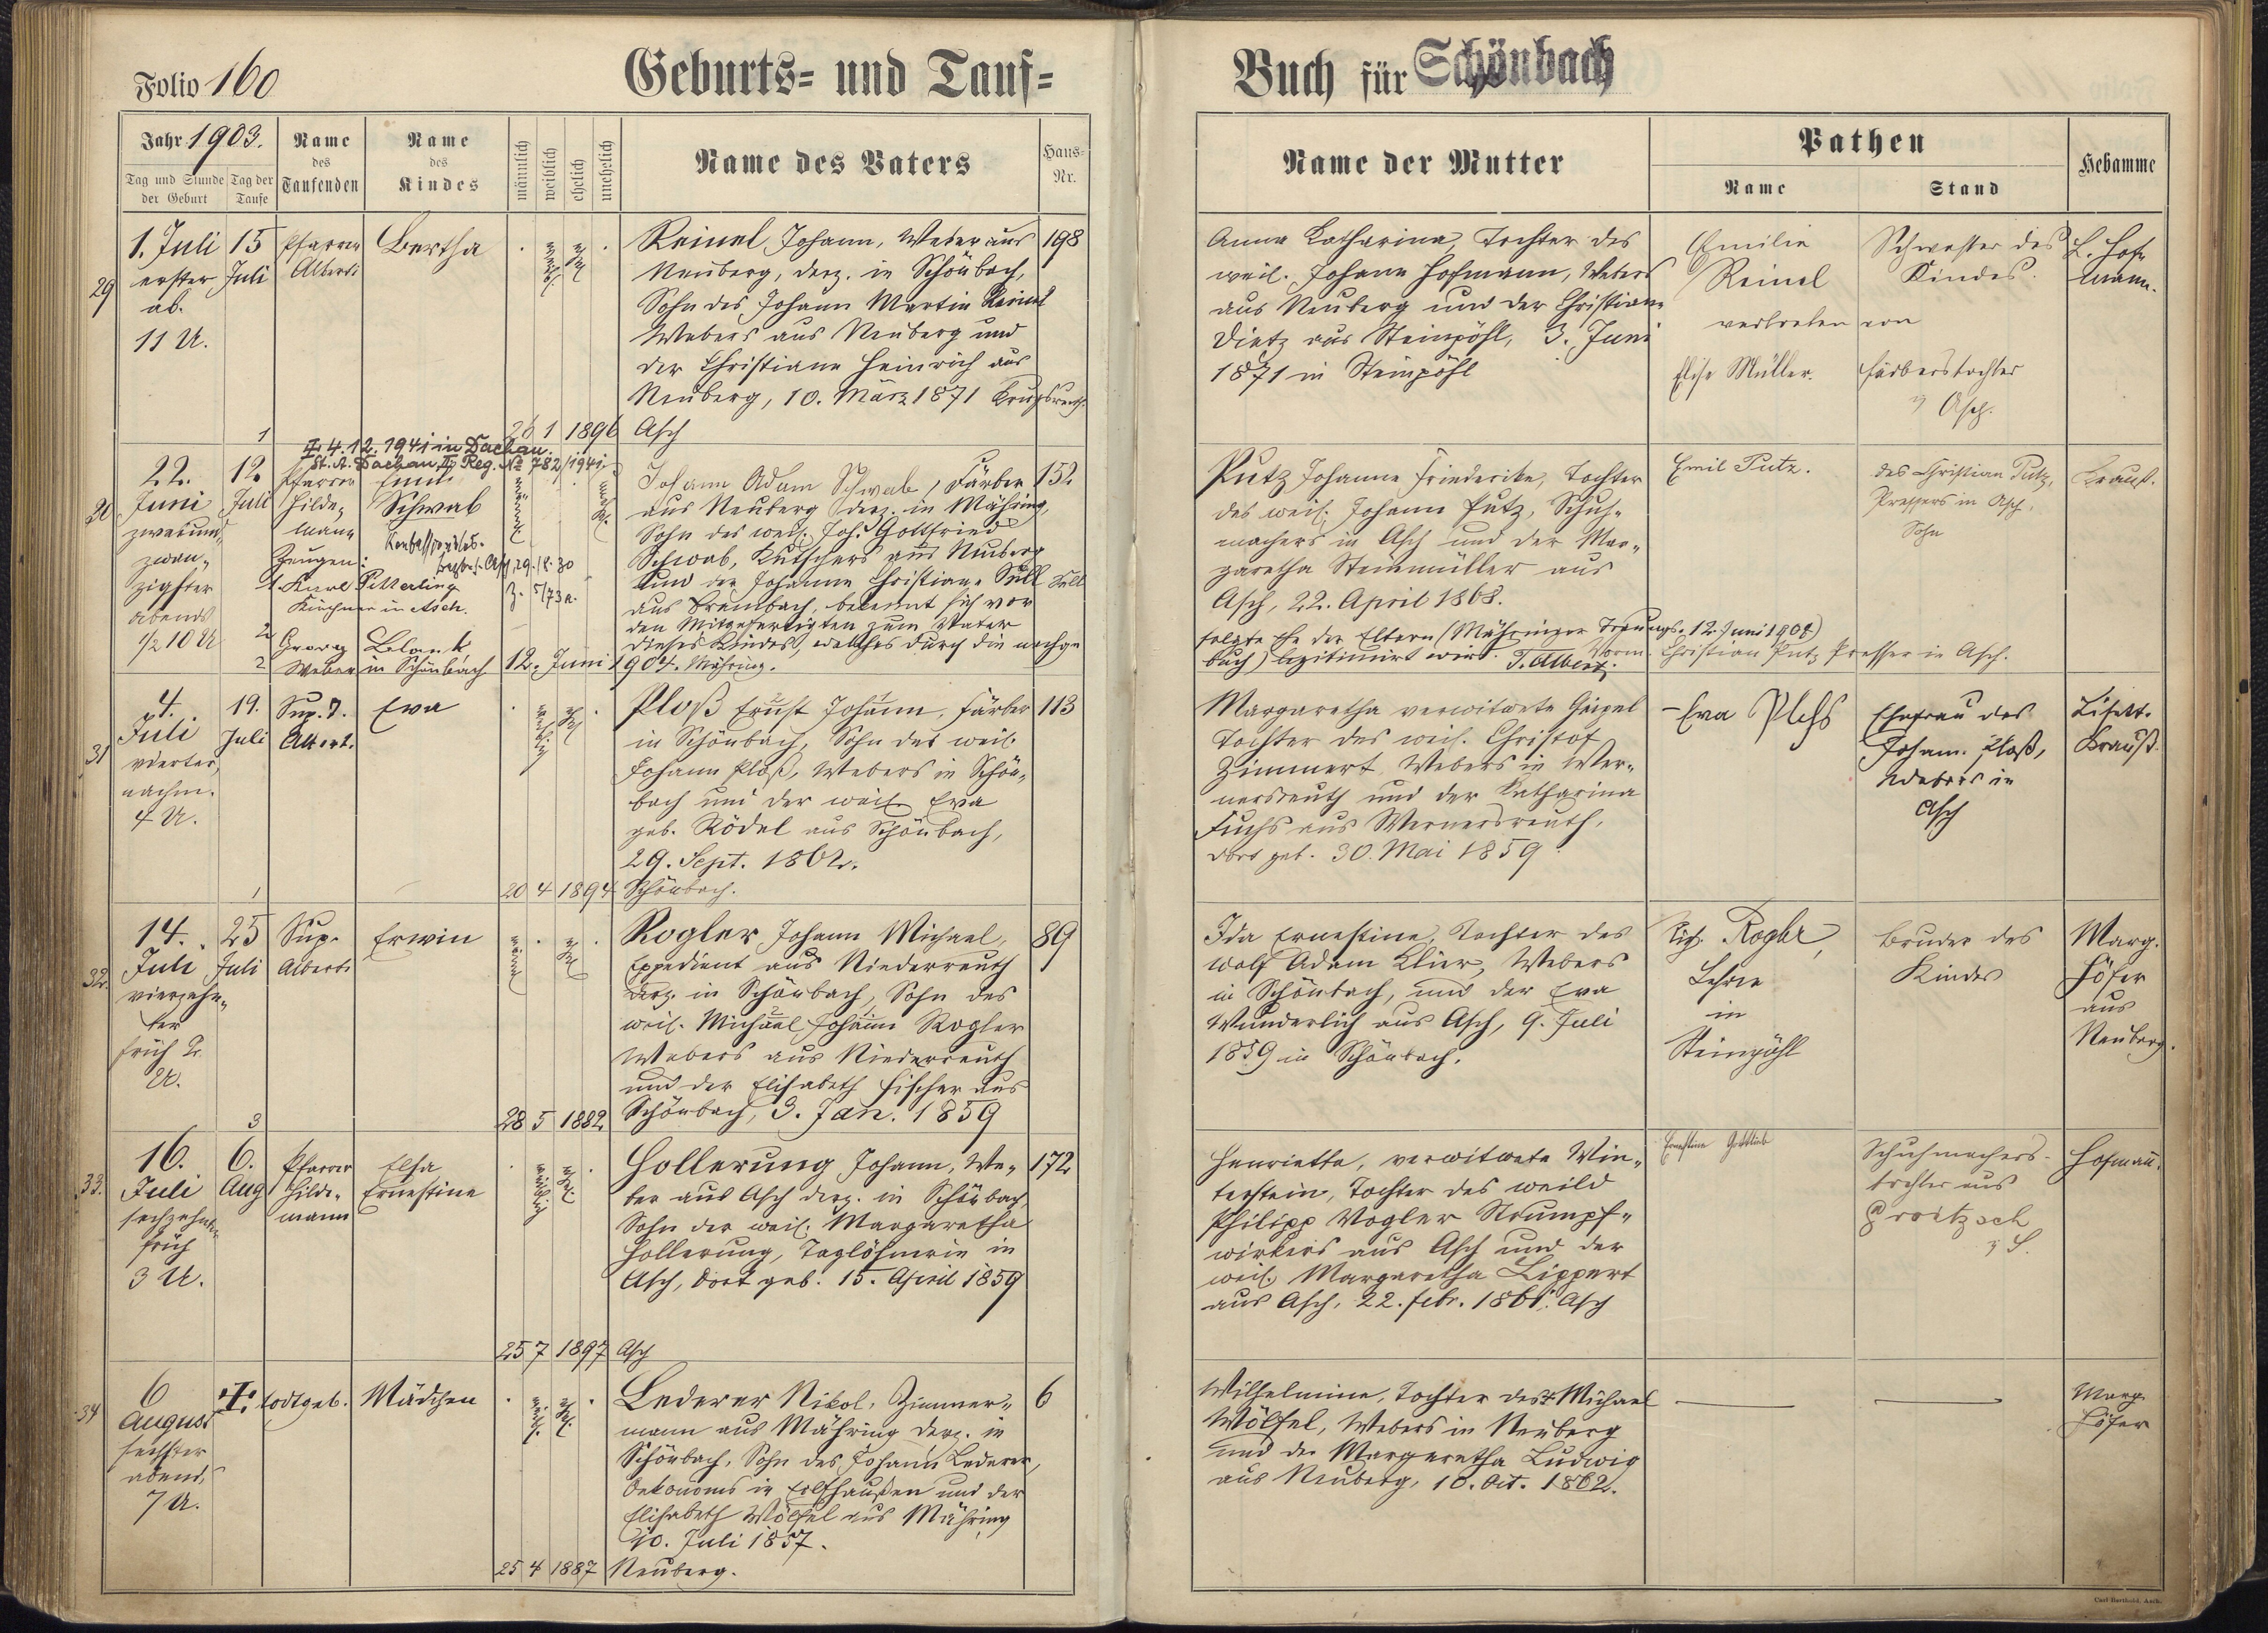 Folio 160
Geburts- und Tauf-
Jahr 1903.
Tag und Stunde der Geburt
Tag der Taufe
Name des Taufenden
Name des Kindes
männlich
weiblich
ehelich
unehelich
Name des Vaters
Haus-Nr.
29
1. Juli
erster
ab.
11 U.
15
Juli
Pfarrer
Alberti
Bertha
Reinel, Johann, Weber aus
Neuberg, derz. in Schönbach,
Sohn des Johann Martin Reinel
Webers aus Neuberg und
der Christiane Heinrich aus
Neuberg, 10. März 1871
198
1
26 1 1896 Asch
4.12.1941 in Dachau.
St. A. Dachau II Reg. No 782/1941.
30
22.
Juni
zweiund-
zwan-
zigster
abends
1/2 10 U
12.
Juli
Pfarrer
Hilde-
mann
Zeugen:
1. Karl Pitterling
Kirchner in Asch.
2. Georg
Weber in Schönbach
Emil
Schwab
Johann Adam Schwab, Färber
aus Neuberg derz. in Mähring,
Sohn des weil. Joh. Gottfried
Schwab, Kutschers aus Neuberg
und der Johanne Christiane Süll
aus Brambach, bekennt sich vor
den Mitgefertigten zum Vater
dieses Kindes, welches durch die nachge
152
12. Juni 1904. Mähring.
31
4.
Juli
vierter,
nachm.
4 U.
19.
Juli
Sup. T.
Alberti.
Eva
Ploß Ernst Johann, Färber
in Schönbach, Sohn des weil.
Johann Ploß, Webers in Schön-
bach und der weil. Eva
geb. Rödel aus Schönbach,
29. Sept. 1862.
113
1
20 4 1894 Schönbach.
32.
14.
Juli
vierzehn-
ter
früh 2
U.
25
Juli
Sup.
Alberti
Erwin
Rogler Johann Michael,
Expedient aus Niederreuth
derz. in Schönbach, Sohn des
weil. Michael Johann Rogler
Webers aus Niederreuth
und der Elisabeth Fischer aus
Schönbach, 3. Jan. 1859
89
3
28 5 1882
33.
16.
Juli
sechzehnter
früh
3 U.
6.
Aug
Pfarrer
Hilde-
mann
Elsa
Ernestine
Hollerung Johann, We-
ber aus Asch derz. in Schönbach,
Sohn der weil. Margaretha
Hollerung, Taglöhnerin in
Asch, dort geb. 15. April 1859
172
25 7 1897 Asch
34
6
August
sechster
abend,
7 U.
todtgeb.
Mädchen
Lederer Nikol, Zimmer-
mann aus Mähring derz. in
Schönbach, Sohn des Johann Lederer,
Oekonoms in und der
Elisabeth Wölfel aus Mähring
10. Juli 1857.
6
25 4 1887 Neuberg.
Buch für Schönbach
Name der Mutter
Pathen
Name
Stand
Hebamme
Anna Katharina, Tochter des
weil. Johann Hofmann, Webers
aus Neuberg und der Christiane
Dietz aus Steinpöhl, 3. Juni
1871 in Steinpöhl
Emilie
Reinel
vertreten von
Elise Müller.
Schwester des
Kindes.
Färberstochter
Asch.
Hof-
mann.
Putz Johanne Friederike, Tochter
des weil. Johann Putz, Schuh-
machers in Asch und der Mar-
garetha Steinmüller aus
Asch, 22. April 1868.
folgte Ehe der Eltern (Mähringer Trauungs- 12. Juni 1904)
buch) legitimirt wird. T. Alberti.
Vorm. Christian Putz Presser in Asch.
Emil Putz.
des Christian Putz,
Pressers in Asch,
Sohn
Krauß.
Margaretha verwitwete Geipel
Tochter des weil. Christof
Zimmert, Webers in Wer-
nersreuth und der Katharina
Fuchs aus Wernersreuth,
dort geb. 30. Mai 1859
Eva Ploß
Ehefrau des
Johann Ploß,
Webers in
Asch
Lisett.
Krauß.
Ida Ernestine, Tochter des
Wolf Adam Klier, Webers
in Schönbach, und der Eva
Wunderlich aus Asch, 9. Juli
1859 in Schönbach.
Rogler,
Lehrer
in
Steinpöhl
Bruder des
Kindes
Marg.
Höfer
aus
Neuberg.
Henriette, verwitwete Win-
terstein, Tochter des weild
Philipp Vogler Strumpf-
wirkers aus Asch und der
weil. Margaretha Lippert
aus Asch, 22. Febr. 1861. Asch
Ernestine Gottlieb
Schuhmachers-
tochter aus
Groitzsch
Hofmañ.
Wilhelmine, Tochter des Michael
Wölfel, Webers in Neuberg
und der Margaretha Ludwig
aus Neuberg, 10. Oct. 1862.
Marg.
Höfer
Carl Berthold, Asch.